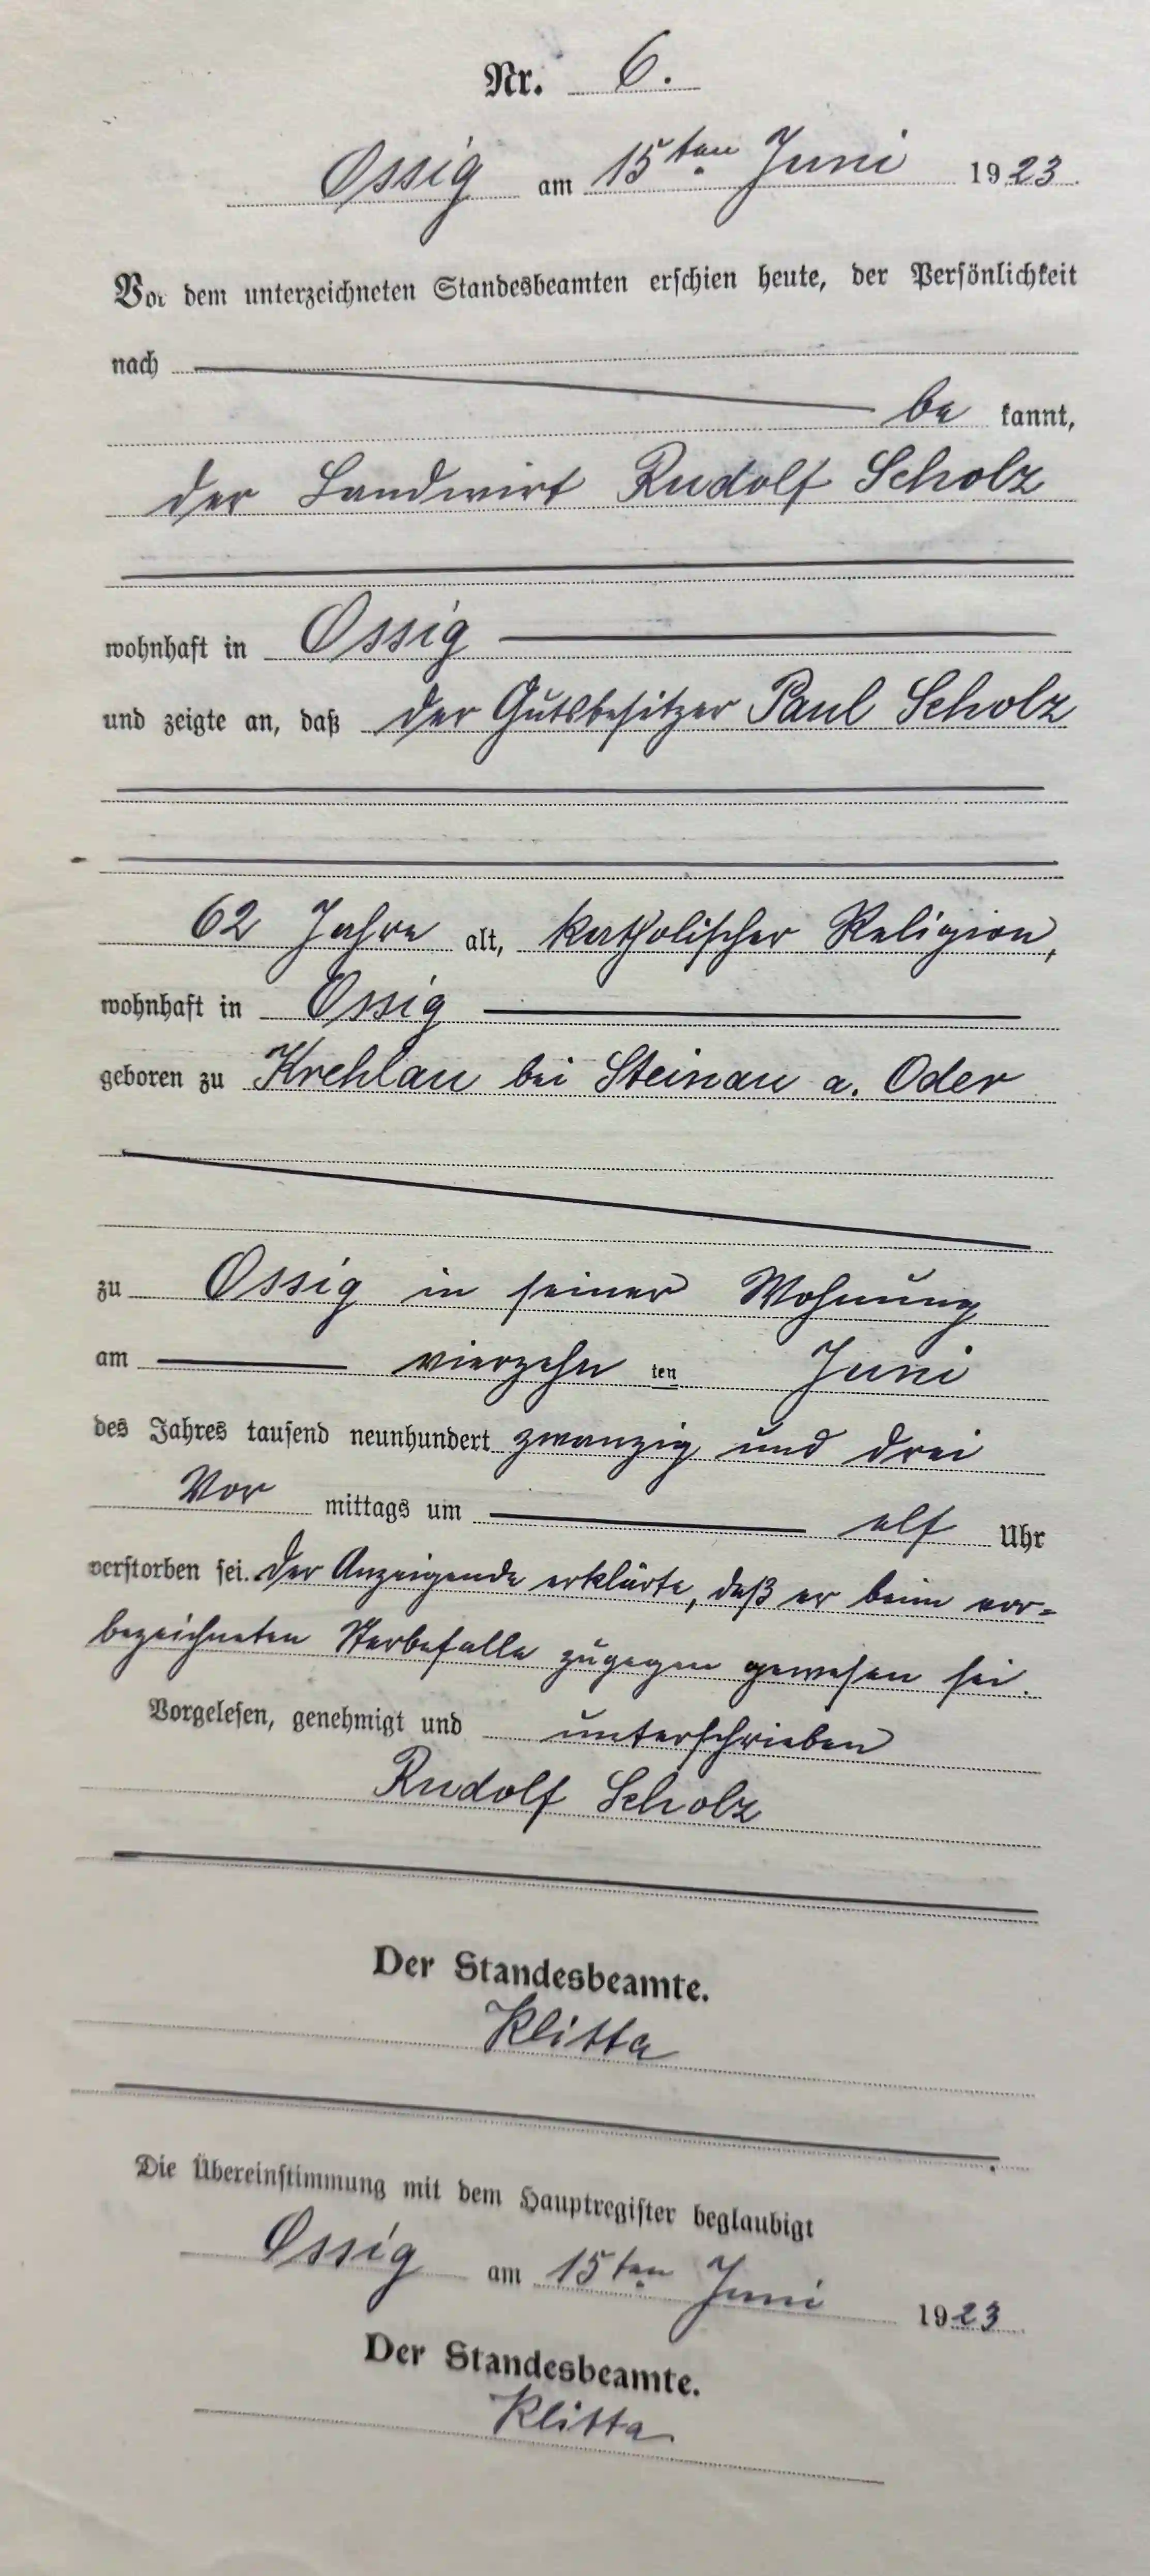 Nr. 6.
Ossig am 15ten Juni 1923.
Vor dem unterzeichneten Standesbeamten erschien heute, der Persönlichkeit
nach
be kannt,
der Landwirt Rudolf Scholz
wohnhaft in Ossig
und zeigte an, daß der Gutsbesitzer Paul Scholz
62 Jahre alt, katholischer Religion,
wohnhaft in Ossig
geboren zu Krehlau bei Steinau a. Oder
zu Ossig in seiner Wohnung
am vierzehn ten Juni
des Jahres tausend neunhundert zwanzig und drei
Vor mittags um elf Uhr
verstorben sei. Der Anzeigende erklärte, daß er beim vor-
bezeichneten Sterbefalle zugegen gewesen sei.
Vorgelesen, genehmigt und unterschrieben
Rudolf Scholz
Der Standesbeamte.
Klitta
Die Übereinstimmung mit dem Hauptregister beglaubigt
Ossig am 15ten Juni 1923
Der Standesbeamte.
Klitta